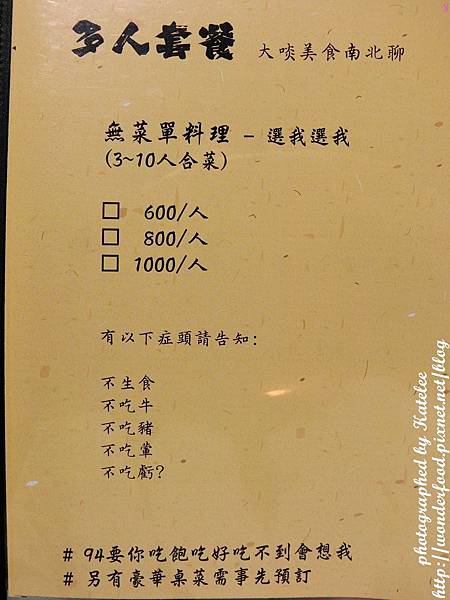 多人套餐 大啖美食南北聊
無菜單料理 - 選我選我
(3~10人合菜)
□ 600/人
□ 800/人
□ 1000/人
有以下症頭請告知:
不生食
不吃牛
不吃豬
不吃葷
不吃虧?
# 94要你吃飽吃好吃不到會想我
# 另有豪華桌菜需事先預訂
photographed by Katelee
http://wonderfood.pixnet.net/blog